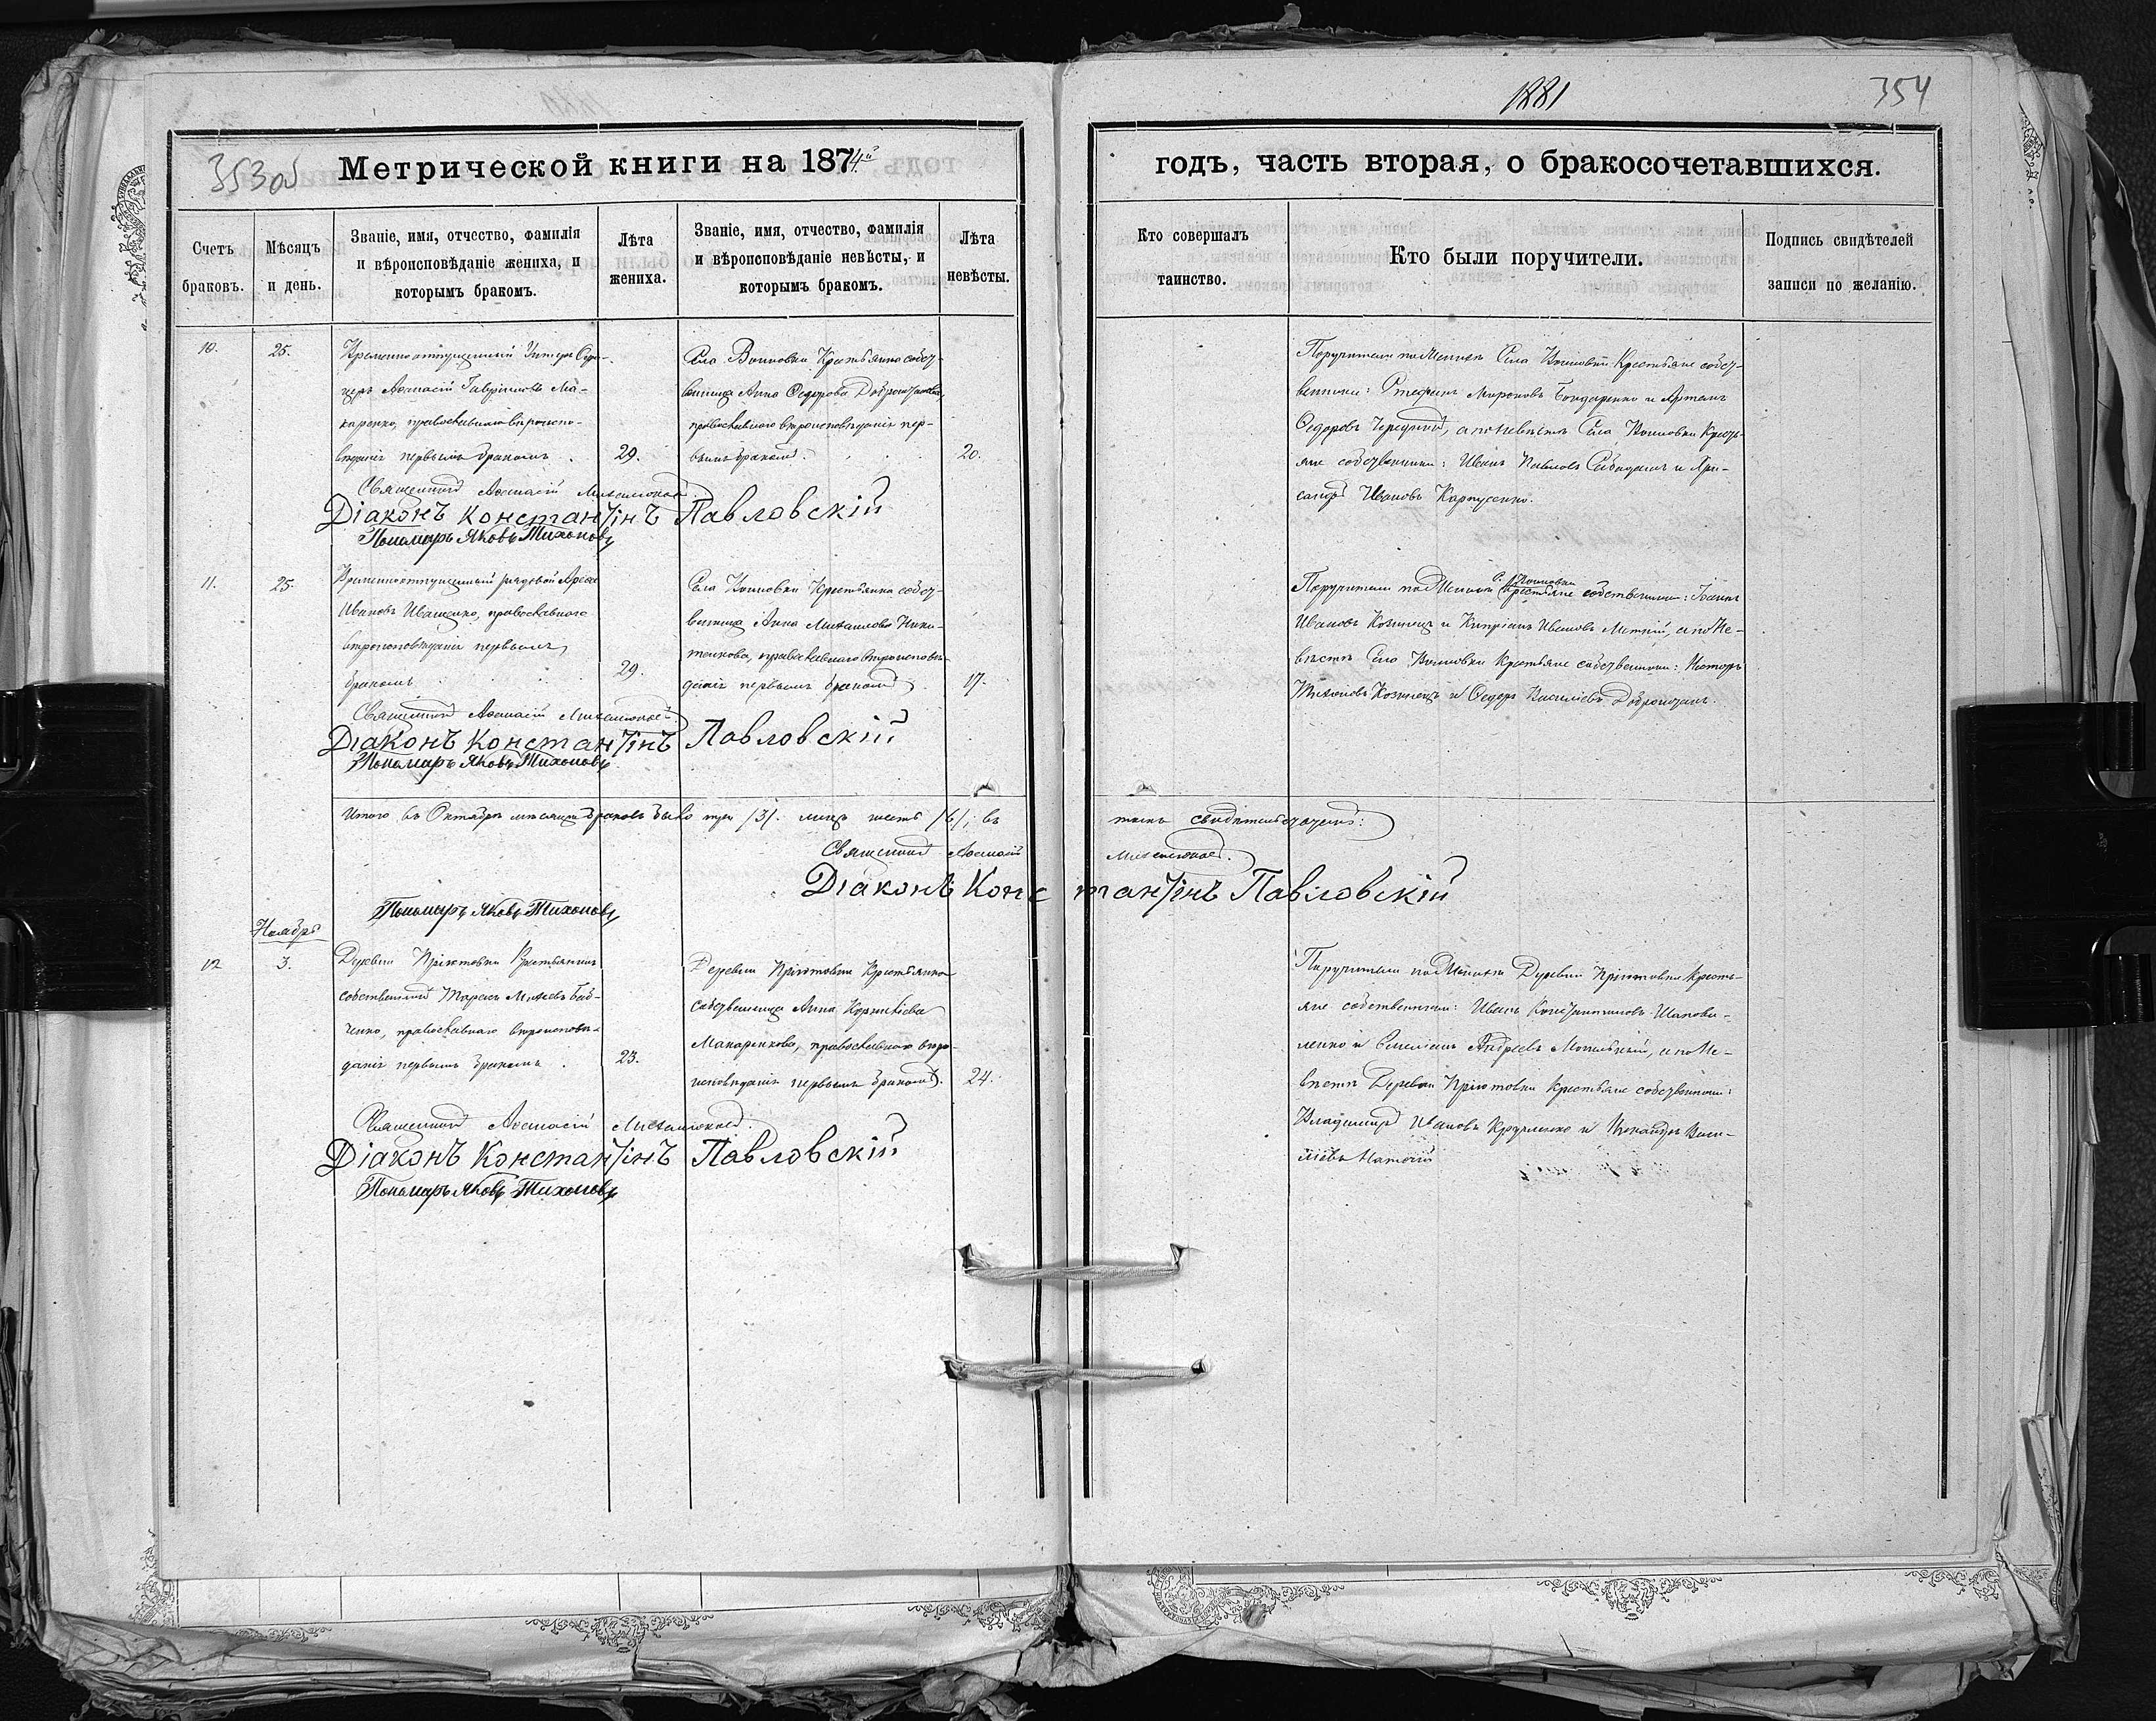 1881
354
353 об
Метрической книги на 1874й
годъ, часть вторая, о бракосочетавшихся.
Счетъ браковъ.
Мѣсяцъ и день.
Званіе, имя, отчество, фамилія
и вѣроисповѣданіе жениха, и
которымъ бракомъ.
Лѣта жениха.
Званіе, имя, отчество, фамилія
и вѣроисповѣданіе невѣсты, и
которымъ бракомъ.
Лѣта невѣсты.
Кто совершалъ таинство.
Кто были поручители.
Подпись свидѣтелей
записи по желанію.
10.
25.
Временноотпущенный Унтеръ Офи-
церъ Аѳанасій Гавриловъ Ма-
каренко, православнаго вѣроиспо-
вѣданія первымъ бракомъ.
29.
Села Воиновки Крестьянка собст-
венница Анна Ѳедорова
православнаго вѣроисповѣданія пер-
вымъ бракомъ.
20.
Поручители по Женихѣ Села Воиновки Крестьяне собст-
венники: Стефанъ Мироновъ Бондаренко и Артемъ
Ѳедоровъ а по невѣстѣ Села Воиновки Кресть-
яне собственники: Иванъ Павловъ и Хри-
санфъ Ивановъ Карпусенко.
Священникъ Аѳанасій
Діаконъ Константінъ Павловскій
Пономарь Яковъ Тихоновъ
11.
25.
Временноотпущенный рядовой
Ивановъ Иващенко, православнаго
вѣроисповѣданія первымъ
бракомъ
29.
Села Воиновки Крестьянка собст-
венница Анна Михаилова Ники-
тенкова, православнаго вѣроисповѣ-
данія первымъ бракомъ.
17.
Поручители по Женихѣ С. Воиновки Крестьяне собственники:
Ивановъ Козинецъ и Кипріанъ Ивановъ а по Не-
вѣстѣ Села Воиновки Крестьяне собственники: Несторъ
Тихоновъ Козинецъ и Ѳедоръ Василіевъ
Священникъ Аѳанасій
Діаконъ Константінъ Павловскій
Пономарь Яковъ Тихоновъ
Итого въ Октябрѣ мѣсяцѣ браковъ было три /3/. лицъ шесть /6/; въ
томъ свидѣтельствуютъ:
Священникъ Аѳанасій
Діаконъ Константінъ Павловскій
Пономарь Яковъ Тихоновъ
Ноябрь
12
3.
Деревни Пріютовки Крестьянинъ
собственникъ Тарасъ
православнаго вѣроисповѣ-
данія первымъ бракомъ.
23.
Деревни Пріютовки Крестьянка
собственница Анна Корниліева
Макаренкова, православнаго вѣро-
исповѣданія первымъ бракомъ.
24.
Поручители по Женихѣ Деревни Пріютовки Кресть-
яне собственники: Иванъ Константиновъ Шапова-
ленко и Емеліанъ Андреевъ а по Не-
вѣстѣ Деревни Пріютовки Крестьяне собственники:
Владиміръ Ивановъ и Никандръ Васи-
ліевъ
Священникъ Аѳанасій
Діаконъ Константінъ Павловскій
Пономарь Яковъ Тихоновъ